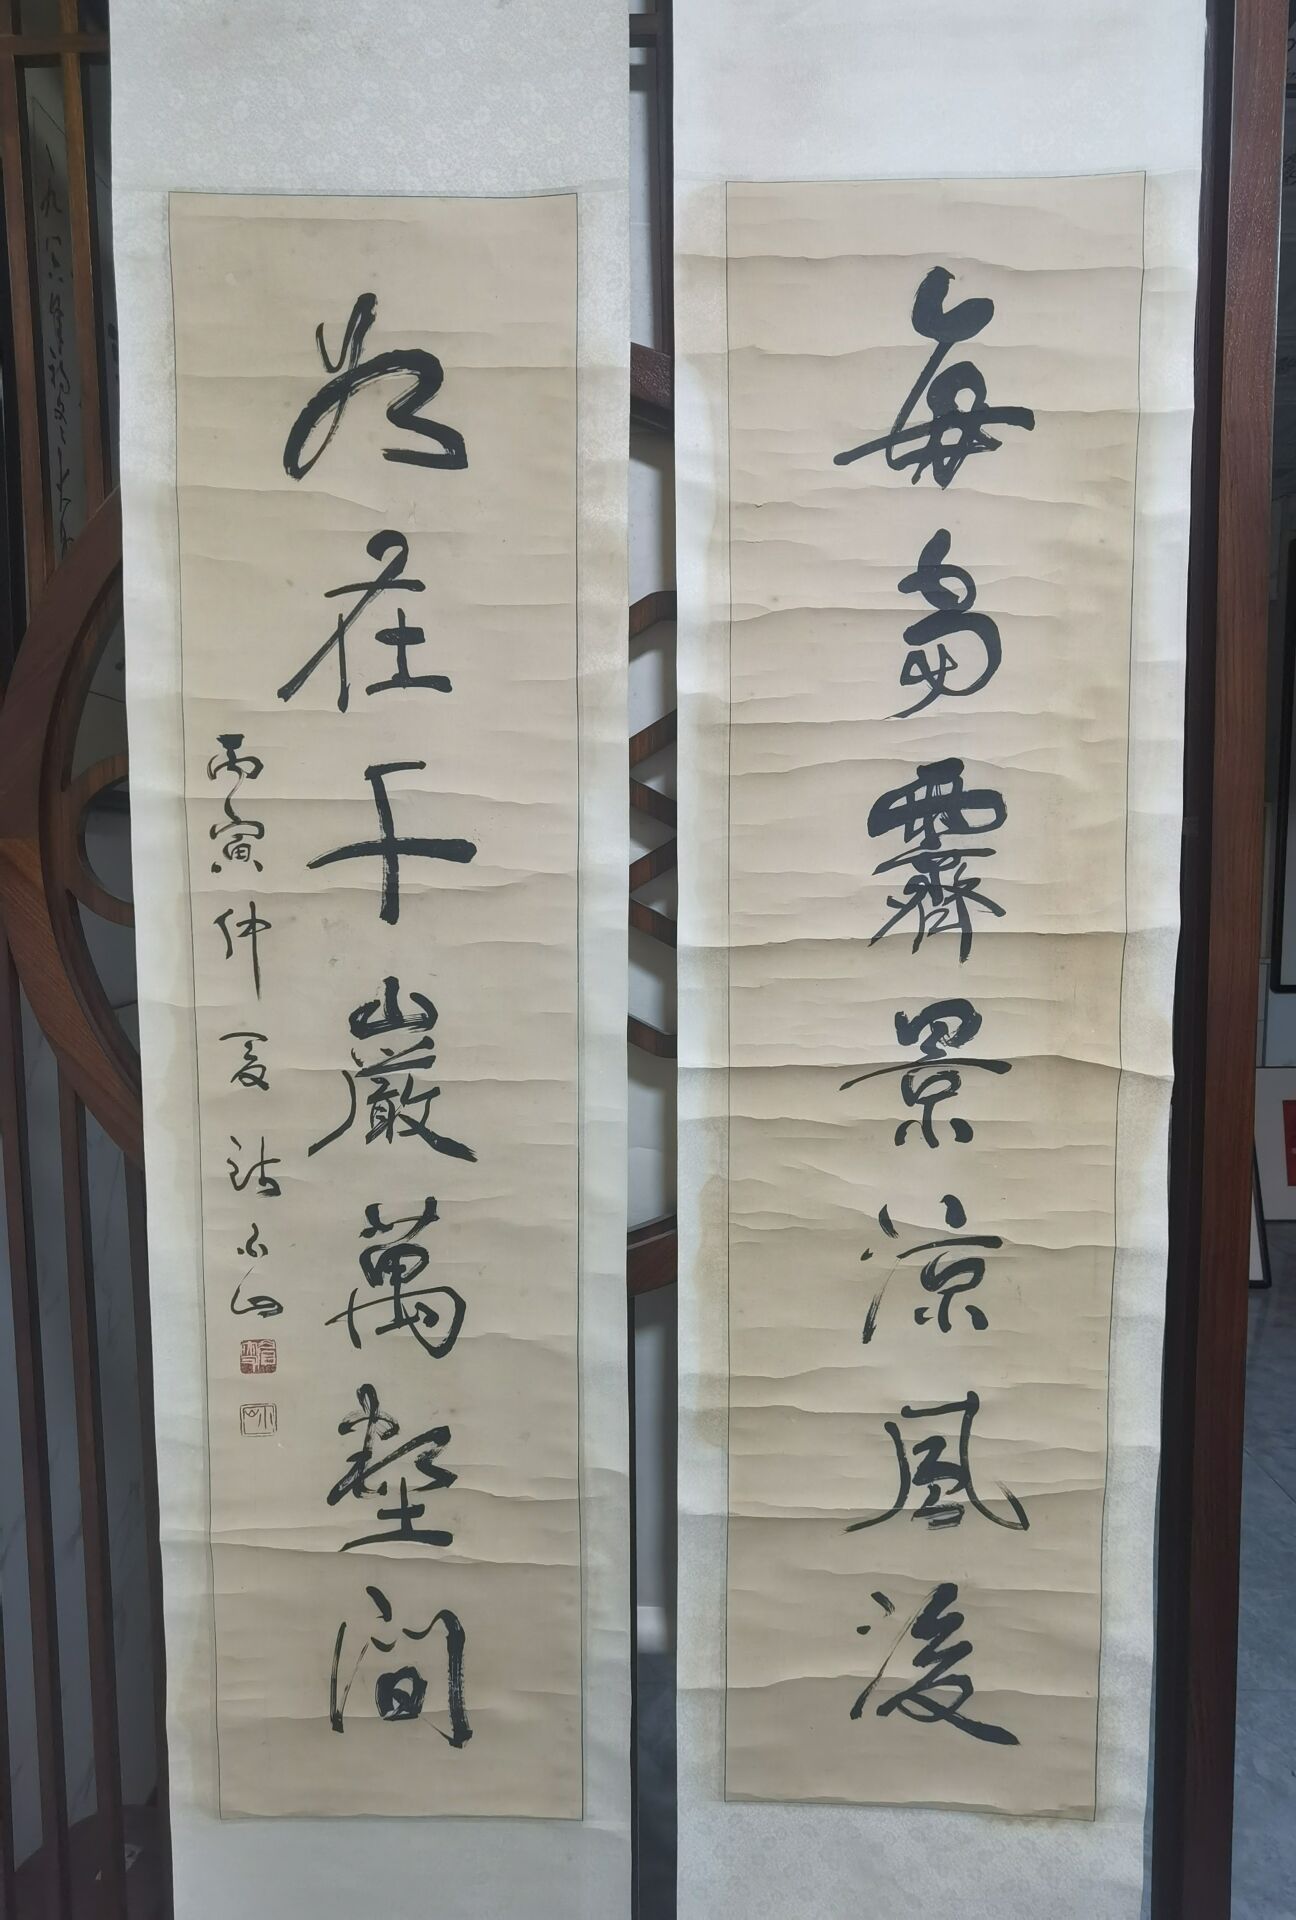 每多霽景涼風後
如在千巖萬壑間
丙寅仲夏